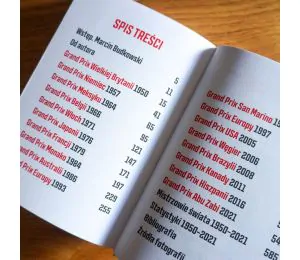 SPIS TREŚCI
Wstęp. Marcin Budkowski 5
Od autora 11
Grand Prix Wielkiej Brytanii 1950 15
Grand Prix Niemiec 1957 41
Grand Prix Meksyku 1964 65
Grand Prix Belgii 1966 95
Grand Prix Włoch 1971 121
Grand Prix Japonii 1976 147
Grand Prix Francji 1979 171
Grand Prix Monako 1984 197
Grand Prix Australii 1986 229
Grand Prix Europy 1993 255
Grand Prix San Marino
Grand Prix Europy 1997
Grand Prix USA 2005
Grand Prix Węgier 2006
Grand Prix Brazylii 2008
Grand Prix Kanady 2011
Grand Prix Hiszpanii 2016
Grand Prix Abu Zabi 2021
Mistrzowie świata 1950-2021
Statystyki 1950-2021
Bibliografia
Źródła fotografii